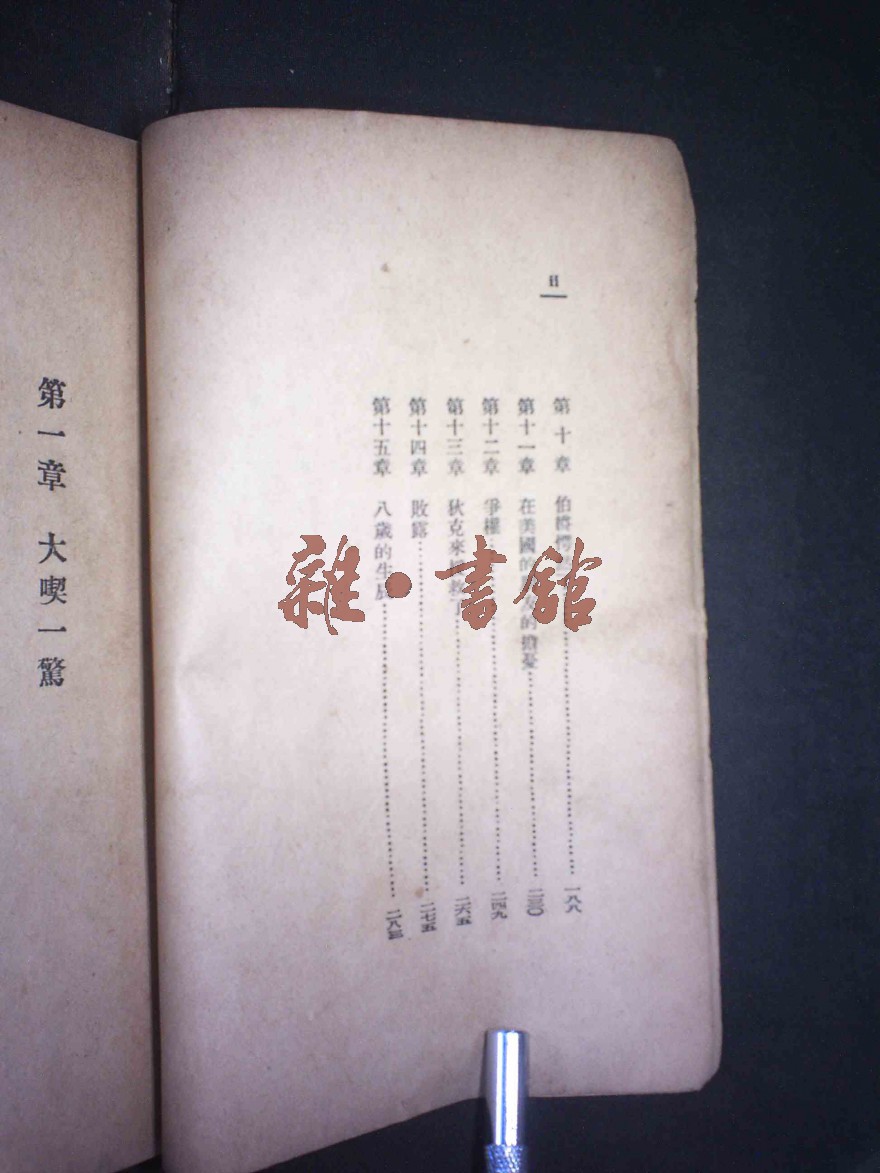 II
第十章 伯爵 一八八
第十一章 在美國的 的擔憂 二三〇
第十二章 爭權 二四九
第十三章 狄克來 救了 二六五
第十四章 敗露 二七五
第十五章 八歲的生辰 二八三
第一章 大喫一驚
雜·書館